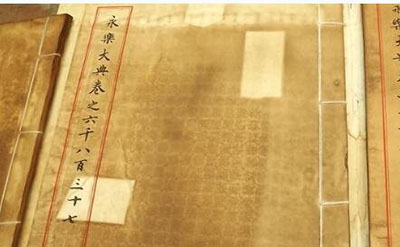 永樂大典卷之六千八百三十七